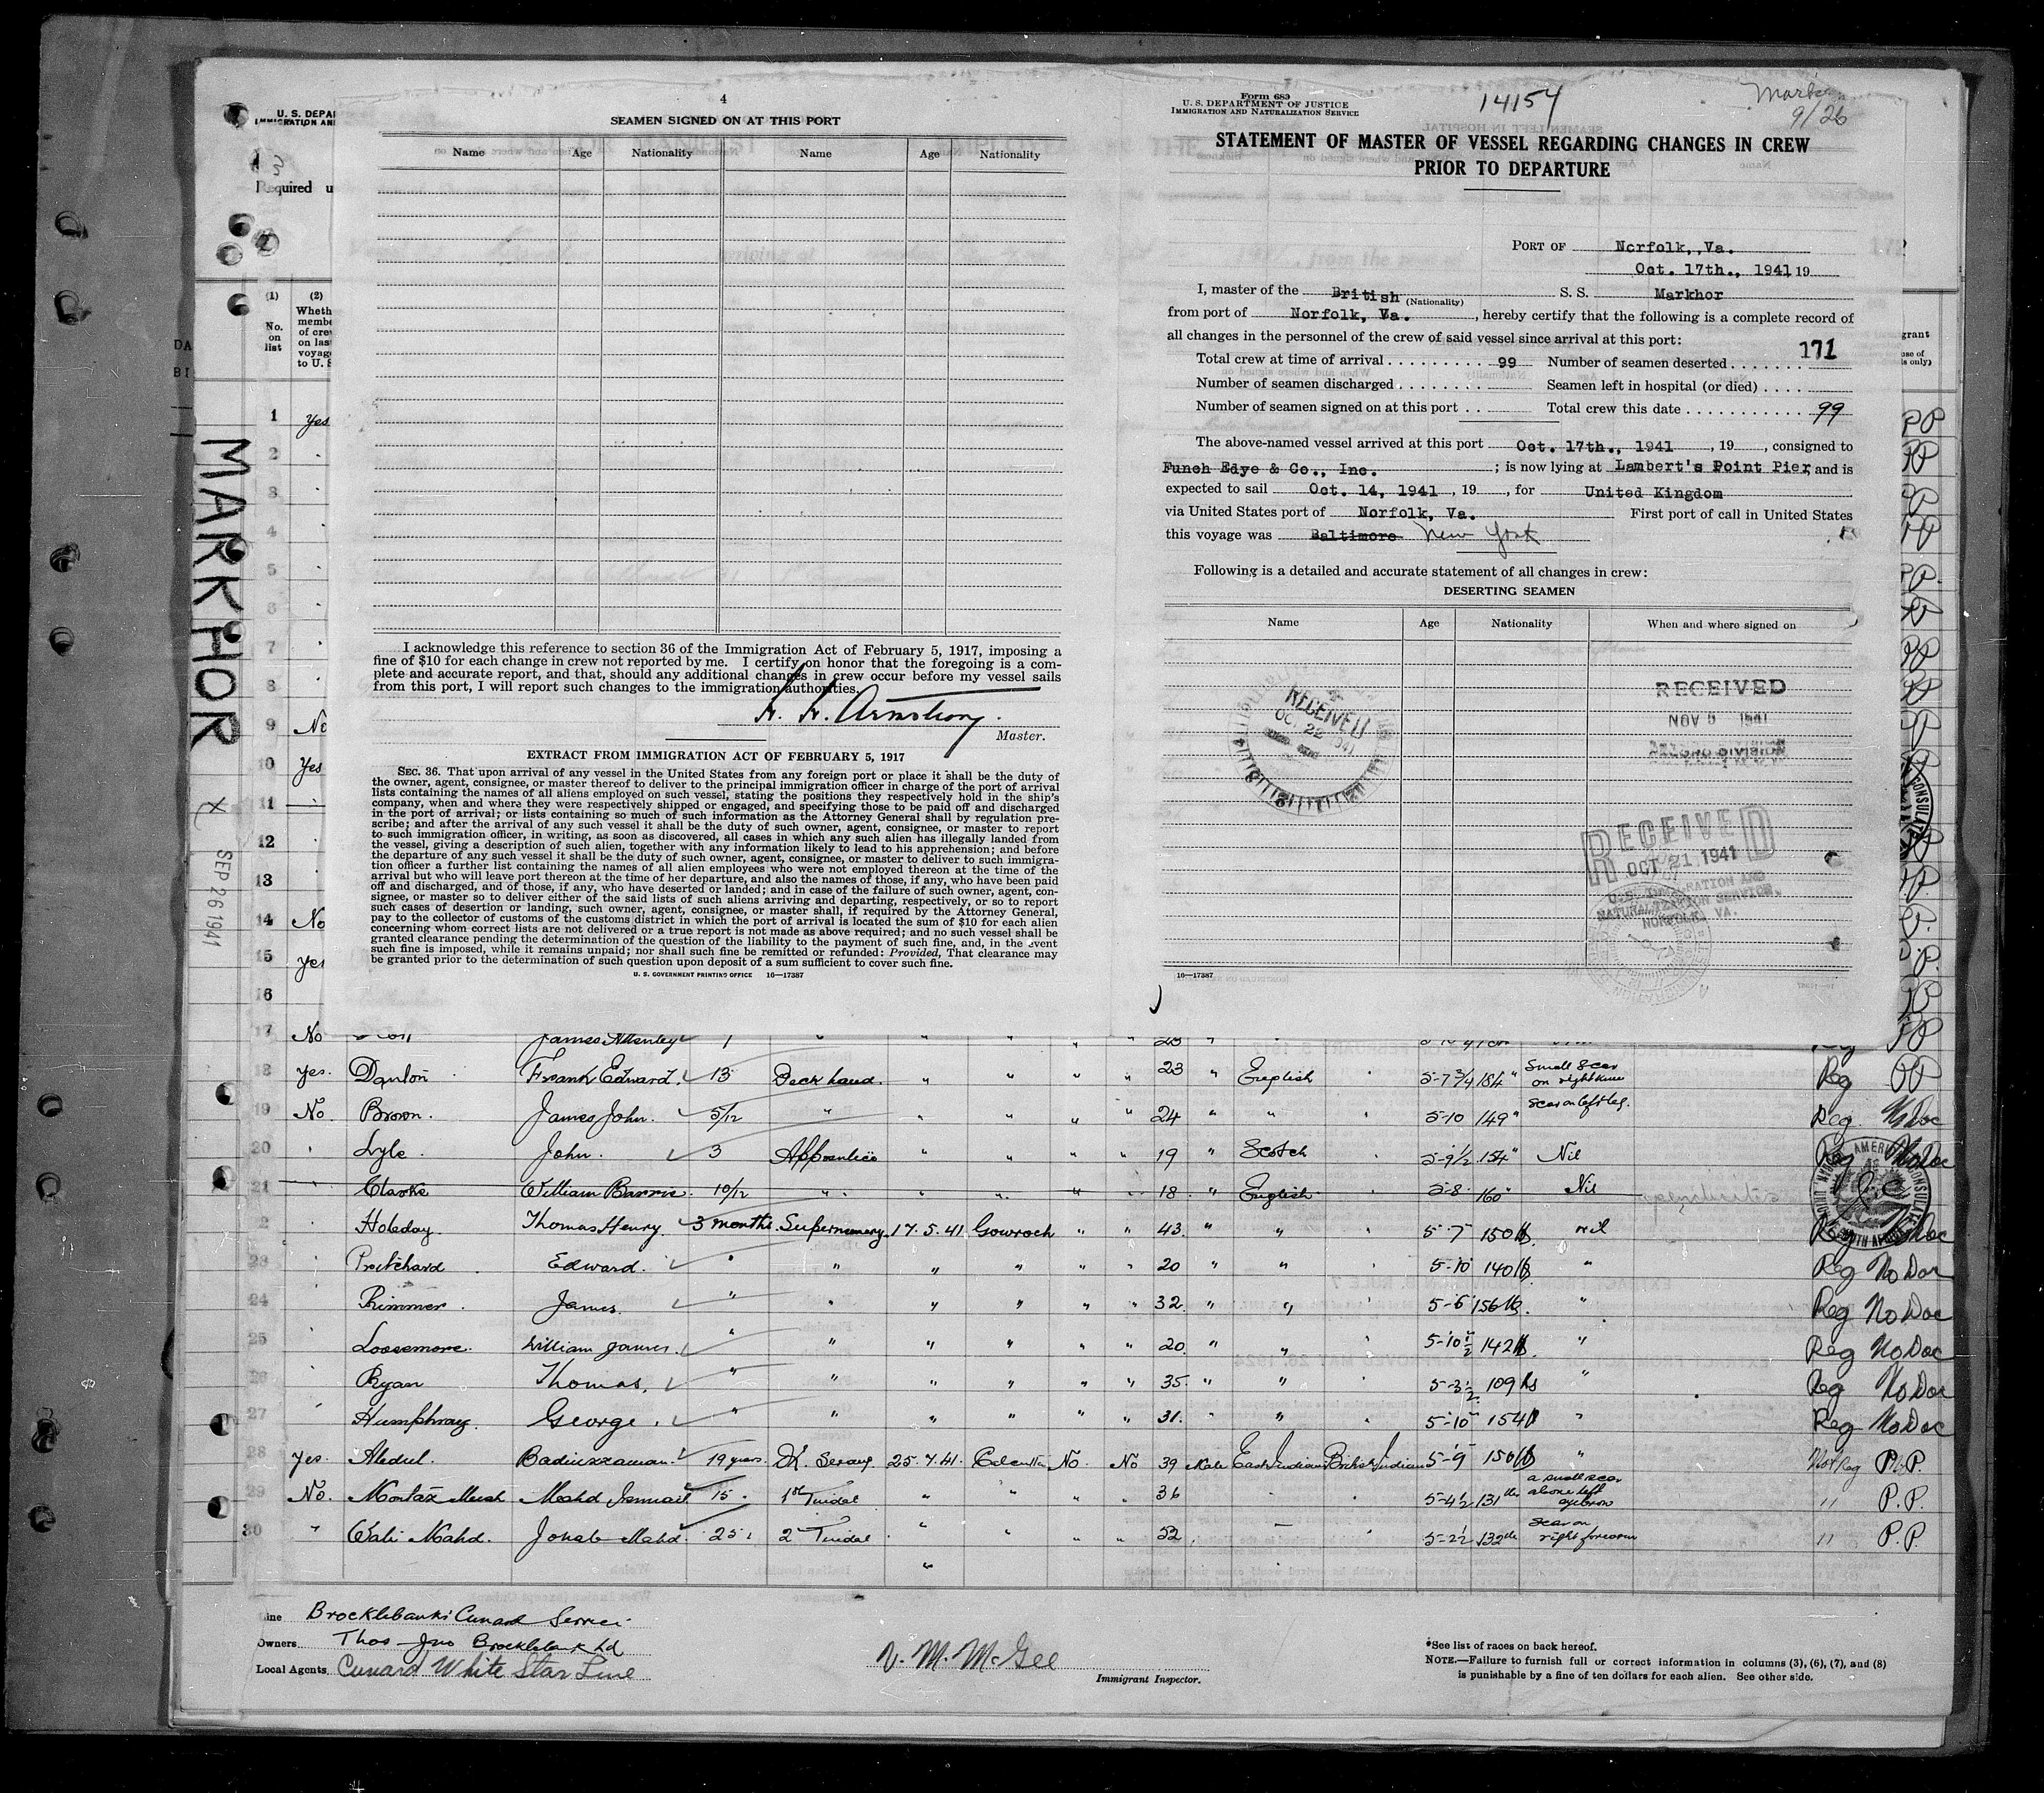 4
SEAMEN SIGNED ON AT THIS PORT
Name Age Nationality Name Age Nationality
I acknowledge this reference to section 36 of the Immigration Act of February 5, 1917, imposing a
fine of $10 for each change in crew not reported by me. I certify on honor that the foregoing is a com-
plete and accurate report, and that, should any additional changes in crew occur before my vessel sails
from this port, I will report such changes to the immigration authorities.
Armstrong.
Master.
EXTRACT FROM IMMIGRATION ACT OF FEBRUARY 5, 1917
SEC. 36. That upon arrival of any vessel in the United States from any foreign port or place it shall be the duty of
the owner, agent, consignee, or master thereof to deliver to the principal immigration officer in charge of the port of arrival
lists containing the names of all aliens employed on such vessel, stating the positions they respectively hold in the ship's
company, when and where they were respectively shipped or engaged, and specifying those to be paid off and discharged
in the port of arrival; or lists containing so much of such information as the Attorney General shall by regulation pre-
scribe; and after the arrival of any such vessel it shall be the duty of such owner, agent, consignee, or master to report
to such immigration officer, in writing, as soon as discovered, all cases in which any such alien has illegally landed from
the vessel, giving a description of such alien, together with any information likely to lead to his apprehension; and before
the departure of any such vessel it shall be the duty of such owner, agent, consignee, or master to deliver to such immigra-
tion officer a further list containing the names of all alien employees who were not employed thereon at the time of the
arrival but who will leave port thereon at the time of her departure, and also the names of those, if any, who have been paid
off and discharged, and of those, if any, who have deserted or landed; and in case of the failure of such owner, agent, con-
signee, or master so to deliver either of the said lists of such aliens arriving and departing, respectively, or so to report
such cases of desertion or landing, such owner, agent, consignee, or master shall, if required by the Attorney General,
pay to the collector of customs of the customs district in which the port of arrival is located the sum of $10 for each alien
concerning whom correct lists are not delivered or a true report is not made as above required; and no such vessel shall be
granted clearance pending the determination of the question of the liability to the payment of such fine, and, in the event
such fine is imposed, while it remains unpaid; nor shall such fine be remitted or refunded: Provided, That clearance may
be granted prior to the determination of such question upon deposit of a sum sufficient to cover such fine.
U. S. GOVERNMENT PRINTING OFFICE 16—17387
Form 689
U. S. DEPARTMENT OF JUSTICE
IMMIGRATION AND NATURALIZATION SERVICE
14154
9/26
STATEMENT OF MASTER OF VESSEL REGARDING CHANGES IN CREW
PRIOR TO DEPARTURE
PORT OF Norfolk,,Va.
Oct. 17th., 1941, 19
I, master of the British (Nationality) S. S. Markhor
from port of Norfolk, Va. , hereby certify that the following is a complete record of
all changes in the personnel of the crew of said vessel since arrival at this port:
171
Total crew at time of arrival . . . . . . . . . 99 Number of seamen deserted . . . . . . .
Number of seamen discharged . . . . . . . . Seamen left in hospital (or died) . . . .
Number of seamen signed on at this port . . Total crew this date . . . . . . . . . . . 99
The above-named vessel arrived at this port Oct. 17th., 1941 , 19 , consigned to
Funch Edye & Co., Inc. ; is now lying at Lambert's Point Pier, and is
expected to sail Oct. 14, 1941 , 19 , for United Kingdom
via United States port of Norfolk, Va. First port of call in United States
this voyage was Baltimore New York
Following is a detailed and accurate statement of all changes in crew:
DESERTING SEAMEN
Name Age Nationality When and where signed on
RECEIVED
OCT 22 1941
RECEIVED
NOV 5 1941
RECORD DIVISION
RECEIVED
OCT 21 1941
U.S. IMMIGRATION AND
NATURALIZATION SERVICE,
NORFOLK, VA.
16—17387
U. S. DEPA
IMMIGRATION AN
3
Required u
(1) (2)
No. on list
Wheth
membe
of crew
on last
voyage
to U. S
MARKHOR
SEP 26 1941
1 Yes
2
3
4
5
6
7
8
9 No
10 Yes
11
12
13
14 No
15 Yes
16
17 No
18 Yes. Danton Frank Edward. 13 Deck hand. " " " " 23 " English 5-7 3/4 184" Small Scar on right knee Reg PP
19 No. Brown. James John. 5/12 " " " " 24 " " 5-10 149" Scar on left leg. Reg. No Doc
20 Lyle. John. 3 Apprentice " " " " 19 " Scotch 5-9 1/2 154" Nil Reg No Doc
21 Clarke William Barrie. 10/12 " " " " " 18. " English 5-8 160" Nil
2 Holeday. Thomas Henry. 3 months. Supernumery. 17.5.41 Gowroch " " 43. " " 5-7 150 lbs. nil Reg No Doc
23 Pritchard Edward. " " " " " " 20 " " 5-10 140 lbs. " Reg No Doc
24 Rimmer. James. " " " " " " 32. " " 5-6 156 lbs. " Reg No Doc
25 Loosemore. William James. " " " " " " 20. " " 5-10 1/2 142 lbs. " Reg No Doc
26 Ryan Thomas. " " " " " " 35. " " 5-3 1/2 109 lbs " Reg No Doc
27 Humphray. George. " " " " " " 31. " " 5-10 154 lbs " Reg No Doc
28 Yes. Abdul. Badiuzzaman. 19 years. Dk. Serang 25.7.41. Calcutta No. No 39 Male East Indian British Indian 5-9 150 lbs " Not Reg P.P.
29 No. Montaz Meah Mahd Ismail 15. 1st Tindal " " " " 36 5-4½ 131 lbs a small scar above left eyebrow " P.P.
30 " Wali Mahd. Jonab Mahd. 25. 2nd Tindal " " " " 52 5-2½ 132 lbs scar on right forearm " P.P.
Line Brocklebanks' Cunard Service
Owners Thos Jno Brocklebank Ld
Local Agents Cunard White Star Line
V. M. McGee
Immigrant Inspector.
*See list of races on back hereof.
NOTE.—Failure to furnish full or correct information in columns (3), (6), (7), and (8)
is punishable by a fine of ten dollars for each alien. See other side.